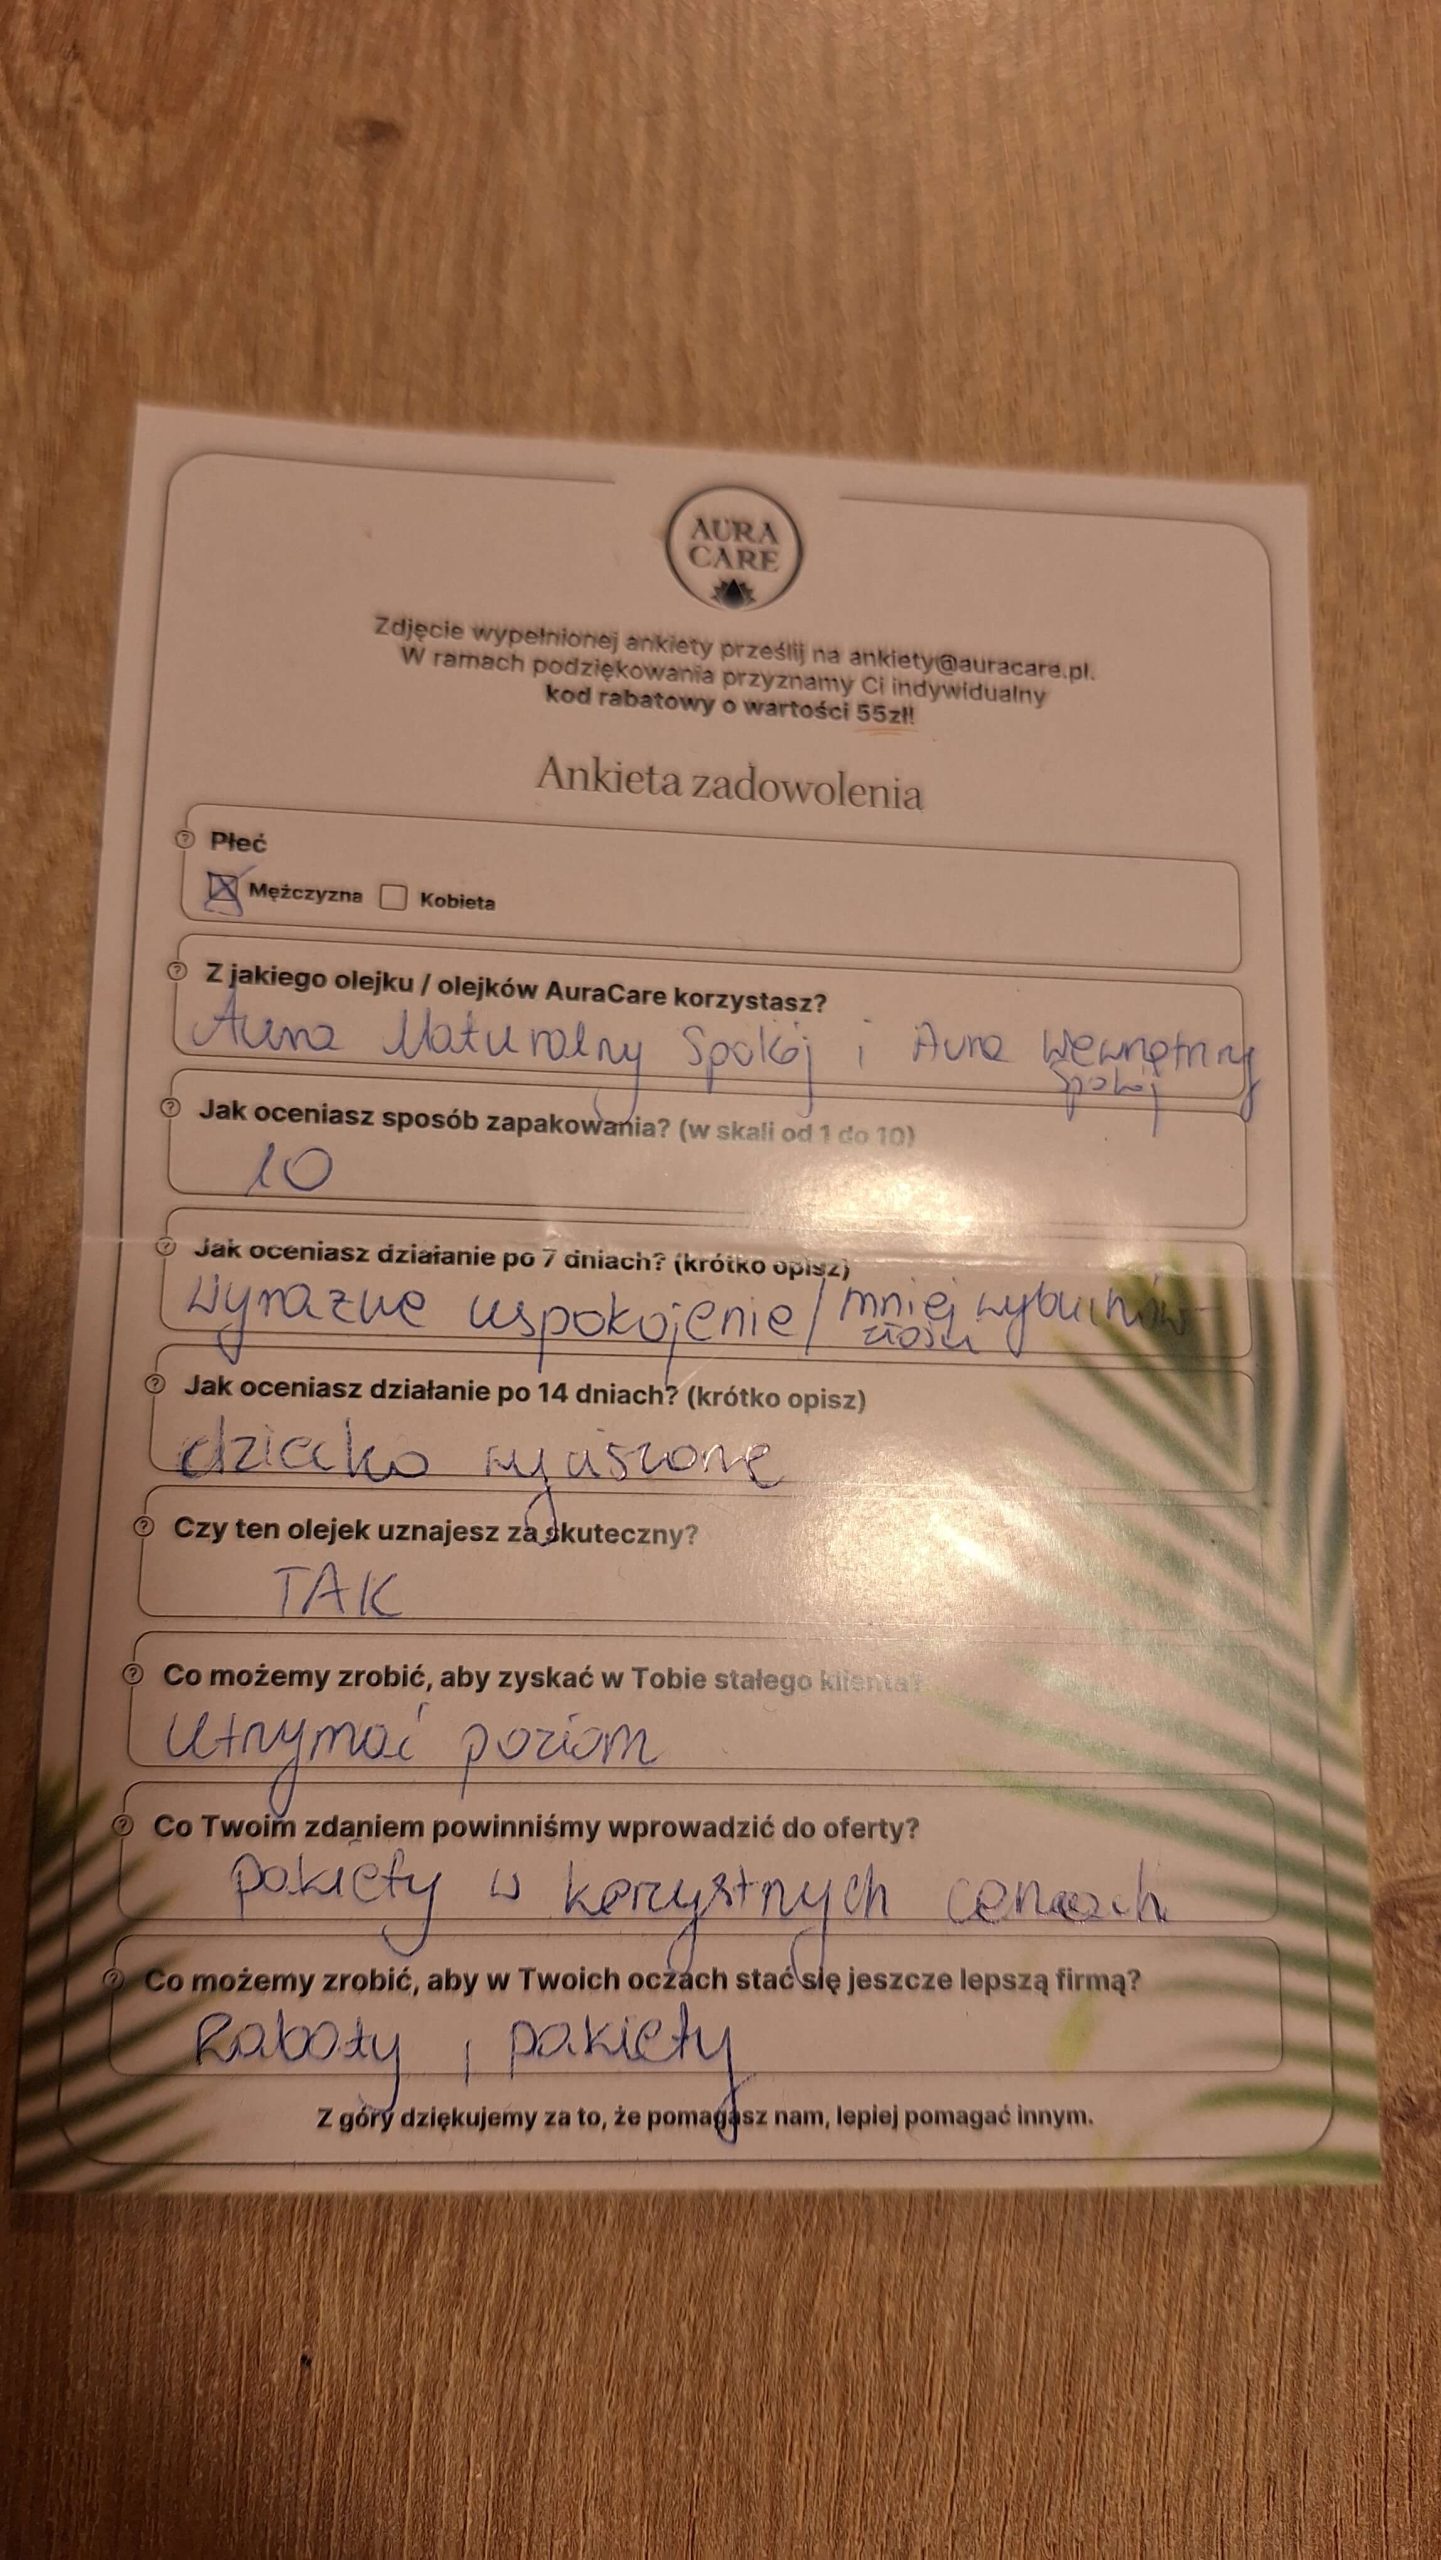 AURA
CARE
Zdjęcie wypełnionej ankiety prześlij na ankiety@auracare.pl.
W ramach podziękowania przyznamy Ci indywidualny
kod rabatowy o wartości 55zł!
Ankieta zadowolenia
Płeć
Mężczyzna Kobieta
Z jakiego olejku / olejków AuraCare korzystasz?
Aura Naturalny Spokój i Aura Wewnętrzny
spokój
Jak oceniasz sposób zapakowania? (w skali od 1 do 10)
10
Jak oceniasz działanie po 7 dniach? (krótko opisz)
wyraźne uspokojenie / mniej wybuchów
złości
Jak oceniasz działanie po 14 dniach? (krótko opisz)
dziecko wyciszone
Czy ten olejek uznajesz za skuteczny?
TAK
Co możemy zrobić, aby zyskać w Tobie stałego klienta?
utrzymać poziom
Co Twoim zdaniem powinniśmy wprowadzić do oferty?
pakiety w korzystnych cenach
Co możemy zrobić, aby w Twoich oczach stać się jeszcze lepszą firmą?
Rabaty i pakiety
Z góry dziękujemy za to, że pomagasz nam, lepiej pomagać innym.